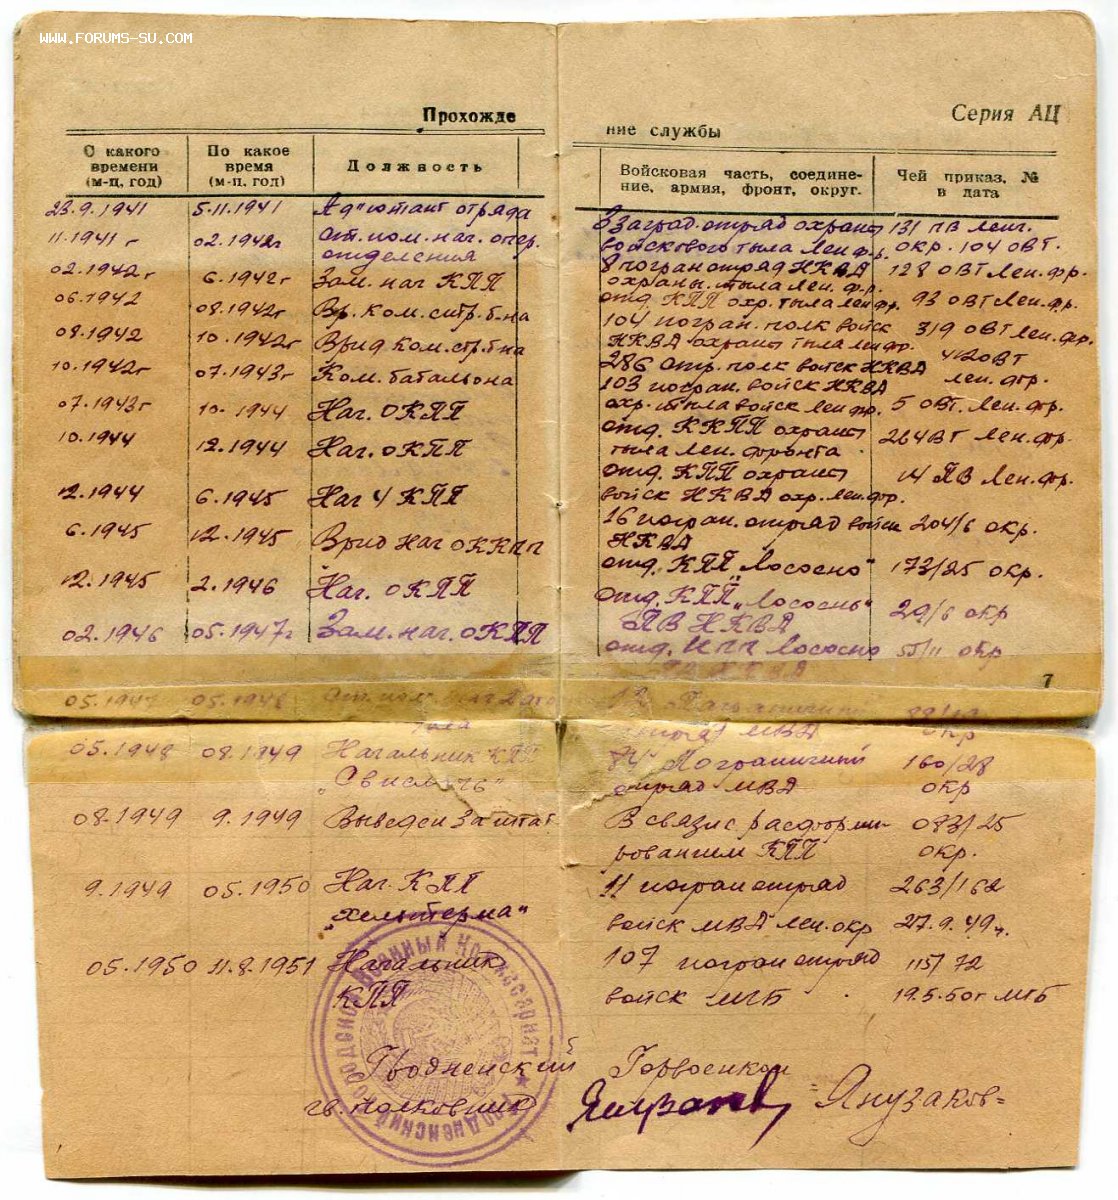 WWW.FORUMS-SU.COM
Прохожде
ние службы
Серия АЦ
С какого времени (м-ц, год)
По какое время (м-ц, год)
Должность
Войсковая часть, соедине-
ние, армия, фронт, округ.
Чей приказ, №
и дата
23.9.1941 5.11.1941 Адъютант отряда 3 заград. отряд охраны 131 ПВ Лен.
войскового тыла Лен.ф.р. окр. 104 ОВТ.
11.1941 г 02.1942г Ст. пом. нач. опер.
отделения 8 погран отряд НКВД 128 ОВТ Лен.фр.
охраны тыла Лен.ф.р.
02.1942г 6.1942г Зам. нач КПП отд. КПП охр. тыла Лен фр. 93 ОВТ Лен.фр.
06.1942 08.1942г Вр. ком. стр. б-на 104 погран. полк войск 319 ОВТ Лен.фр.
НКВД охраны тыла Лен фр.
08.1942 10.1942г Врид ком. стр. б-на 286 стр. полк войск НКВД 420ВТ
Лен.фр.
10.1942г 07.1943г Ком. батальона 103 погран. войск НКВД
охр. тыла войск Лен фр. 5 ОВТ. Лен.фр.
07.1943г 10.1944 Нач. ОКПП отд. ККПП охраны 264ВТ Лен.фр.
тыла Лен. фронта
10.1944 12.1944 Нач. ОКПП отд. КПП охраны 14 ПВ Лен.фр.
войск НКВД охр. Лен.фр.
12.1944 6.1945 Нач 4 КПП 16 погран. отряд войск 204/6 окр.
НКВД
6.1945 12.1945 Врид нач ОККПП отд. КПП Лососно" 173/25 окр.
12.1945 2.1946 Нач. ОКПП отд. КПП „Лососнь" 29/6 окр
ПВ НКВД
02.1946 05.1947г Зам. нач. ОКПП отд. КПП Лососно 55/11 окр
ПВ НКВД
7
05.1947 05.1948 Ст. пом.
Пограничный
отряд МВД окр
05.1948 08.1949 Начальник КПП
„Свислочь"
Пограничный 160/28
отряд МВД окр
08.1949 9.1949 Выведен за штат В связи с расформи- 083/25
рованием КПП окр.
9.1949 05.1950 Нач. КПП 11 погран отряд 263/162
„Хельтерма" войск МВД Лен. окр 27.9.49г.
05.1950 11.8.1951 Начальник 107 погран отряд 115/72
КПП войск МГБ 19.5.50г МГБ
Гродненский Горвоенком
гв. полковник Янузаков
Гродненский городской военный комиссариат